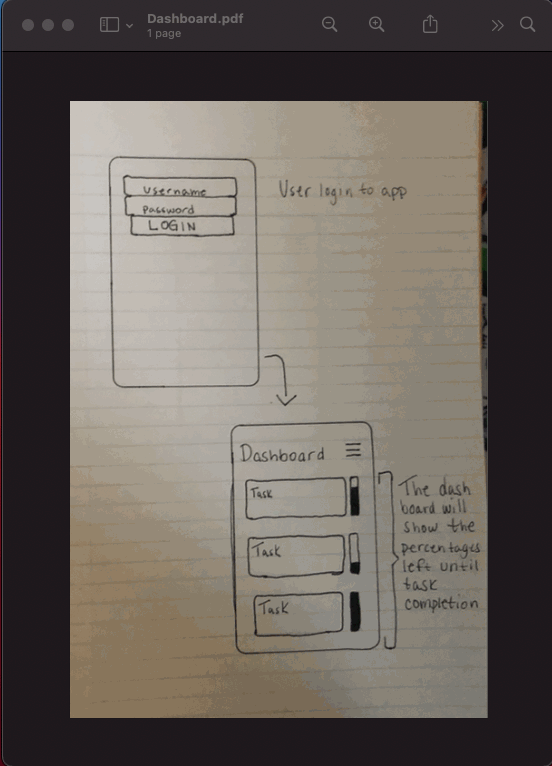 Dashboard.pdf
1 page
Username
Password
LOGIN
User login to app
Dashboard
Task
Task
Task
The dash
board will
show the
percentages
left until
task
completion